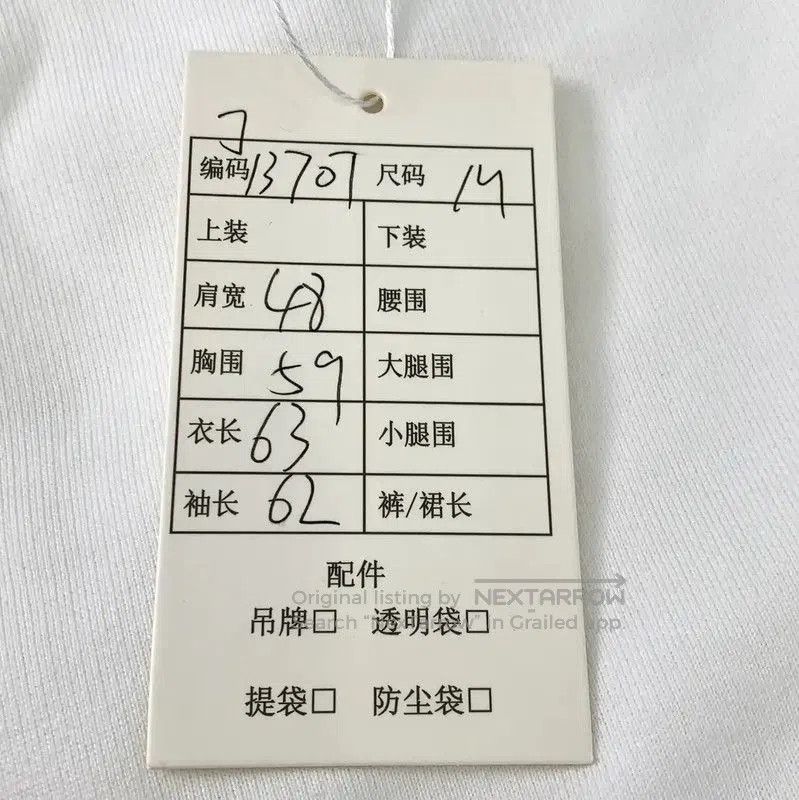 J
编码 13707 尺码 M
上装 下装
肩宽 48 腰围
胸围 59 大腿围
衣长 63 小腿围
袖长 62 裤/裙长
配件
Original listing by NEXTARROW
吊牌□ 透明袋□
Search "Nextarrow" in Grailed app
提袋□ 防尘袋□